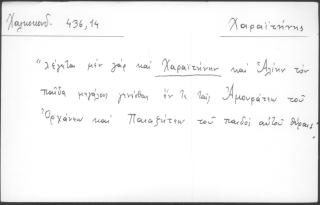 Χαλκοκονδ. 436,14
Χαραϊτήνης
"λέγεται μὲν γὰρ καὶ Χαραϊτήνην καὶ Ἀλίην τὸν
παῖδα μεγάλους γενέσθαι ἔν τε ταῖς Ἀμουράτεω τοῦ
Ὀρχάνεω καὶ Παιαζήτεω τοῦ παιδὸς αὐτοῦ θύραις"